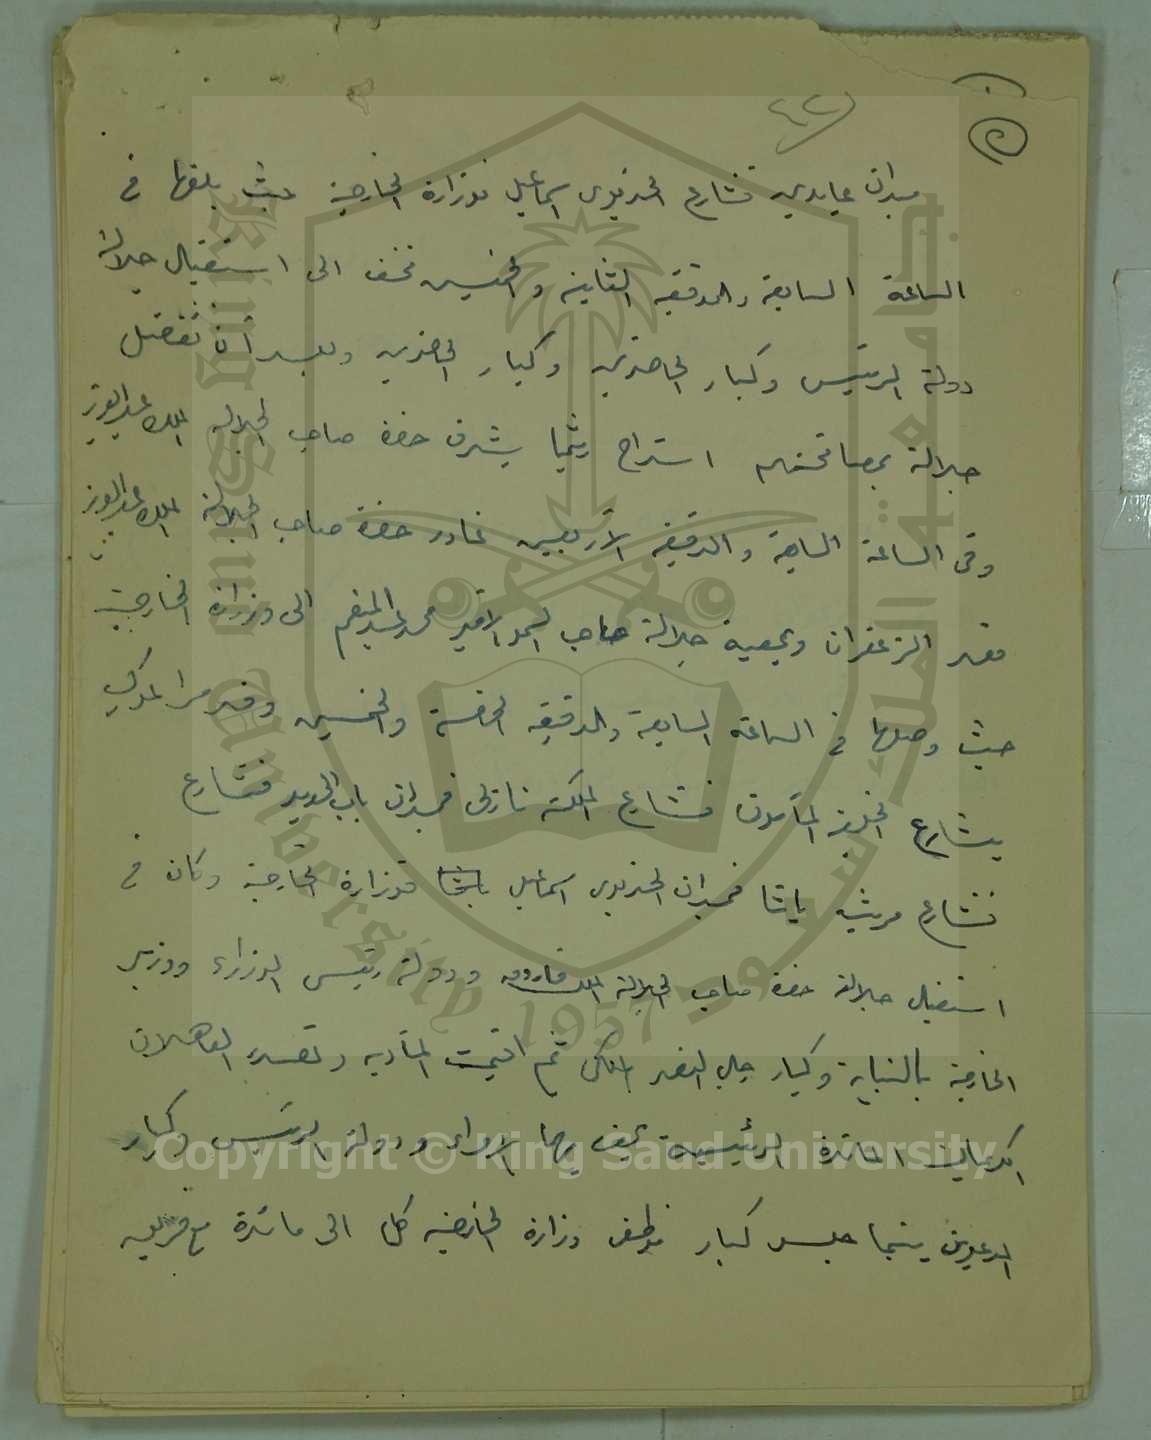 ميدان عابدين فشارع الخديوى اسماعيل فوزارة الخارجية حيث بلغها فى
الساعة السابعة والدقيقة الثانية والخمسين فخف الى استقبال جلالته
دولة الرئيس وكبار الحاضرين وكبار وبعد أن تفضل
جلالة بمصافحتهم استراح ريثما يشرف حضرة صاحب الجلالة الملك عبدالعزيز
وفى الساعة السابعة والدقيقة الاربعين غادر حضرة صاحب الجلالة الملك عبدالعزيز
قصر الزعفران وبمعية جلالة صاحب السمو الامير محمد عبدالمنعم الى وزارة الخارجية
حيث وصلها فى الساعة السابعة والدقيقة الخامسة والخمسين وقد مر الموكب
بشارع الخليفة المأمون فشارع الملكة نازلى فميدان باب الحديد فشارع
فشارع مريت باشا فميدان الخديوى اسماعيل باشا فوزارة الخارجية وكان فى
استقبال جلالة حضرة صاحب الجلالة الملك فاروق ودولة رئيس الوزراء ووزير
الخارجية بالنيابة وكبار رجال القصر الملكى ثم اقيمت المأدبة وتصدر العاهلان
الكريمان المائدة الرئيسية يحف بهما الامراء ودولة الرئيس وكبار
المدعوين بينما جلس كبار موظفى وزارة الخارجية كل الى مائدة مع فريق
جامعة الملك سعود
King Saud University
1957
Copyright © King Saud University